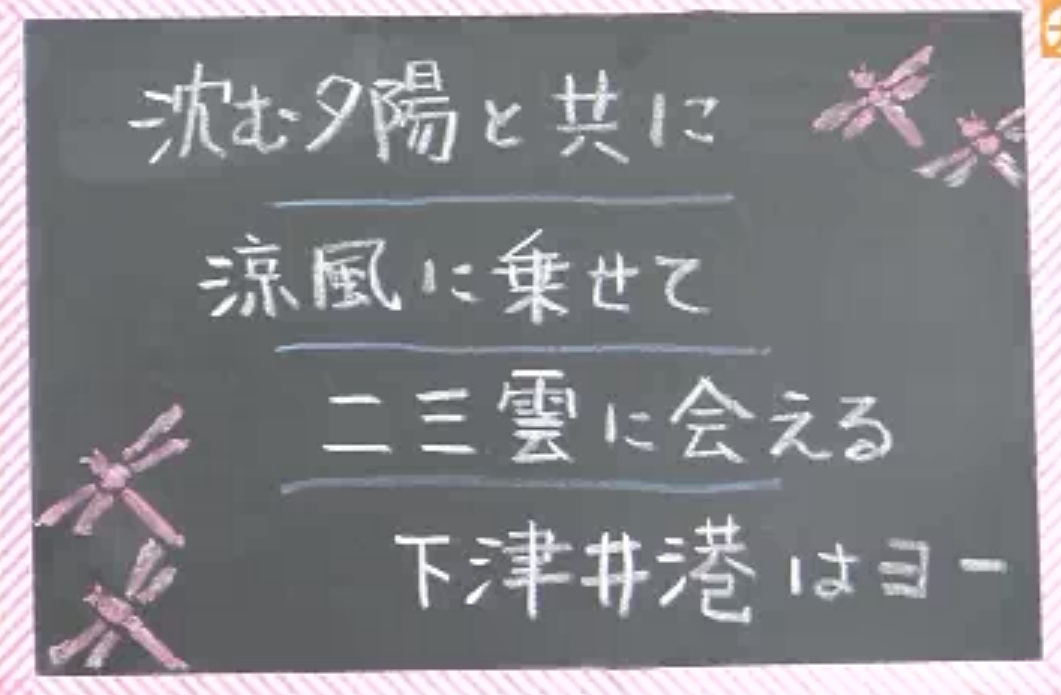 沈む夕陽と共に
涼風に乗せて
二三雲に会える
下津井港はヨー